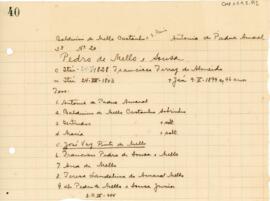 40
Balduino de Mello Castanho Antonia de Padua Amaral
Nº 20
Pedro de Mello e Sousa
Itú 1828 Francisca Ferraz de Almeida
Itú 24-VIII-1803
Teve:
1 Antonia de Padua Amaral
2 Balduino de Mello Castanho Sobrinho
3 Gertrudes solt.
4 Maria solt.
5 José Vaz Pinto de Mello
6 Francisco Pedro de Sousa e Mello
7 Ana de Mello
8 Teresa Landelina do Amaral Mello
9 Pedro de Mello e Sousa Junior